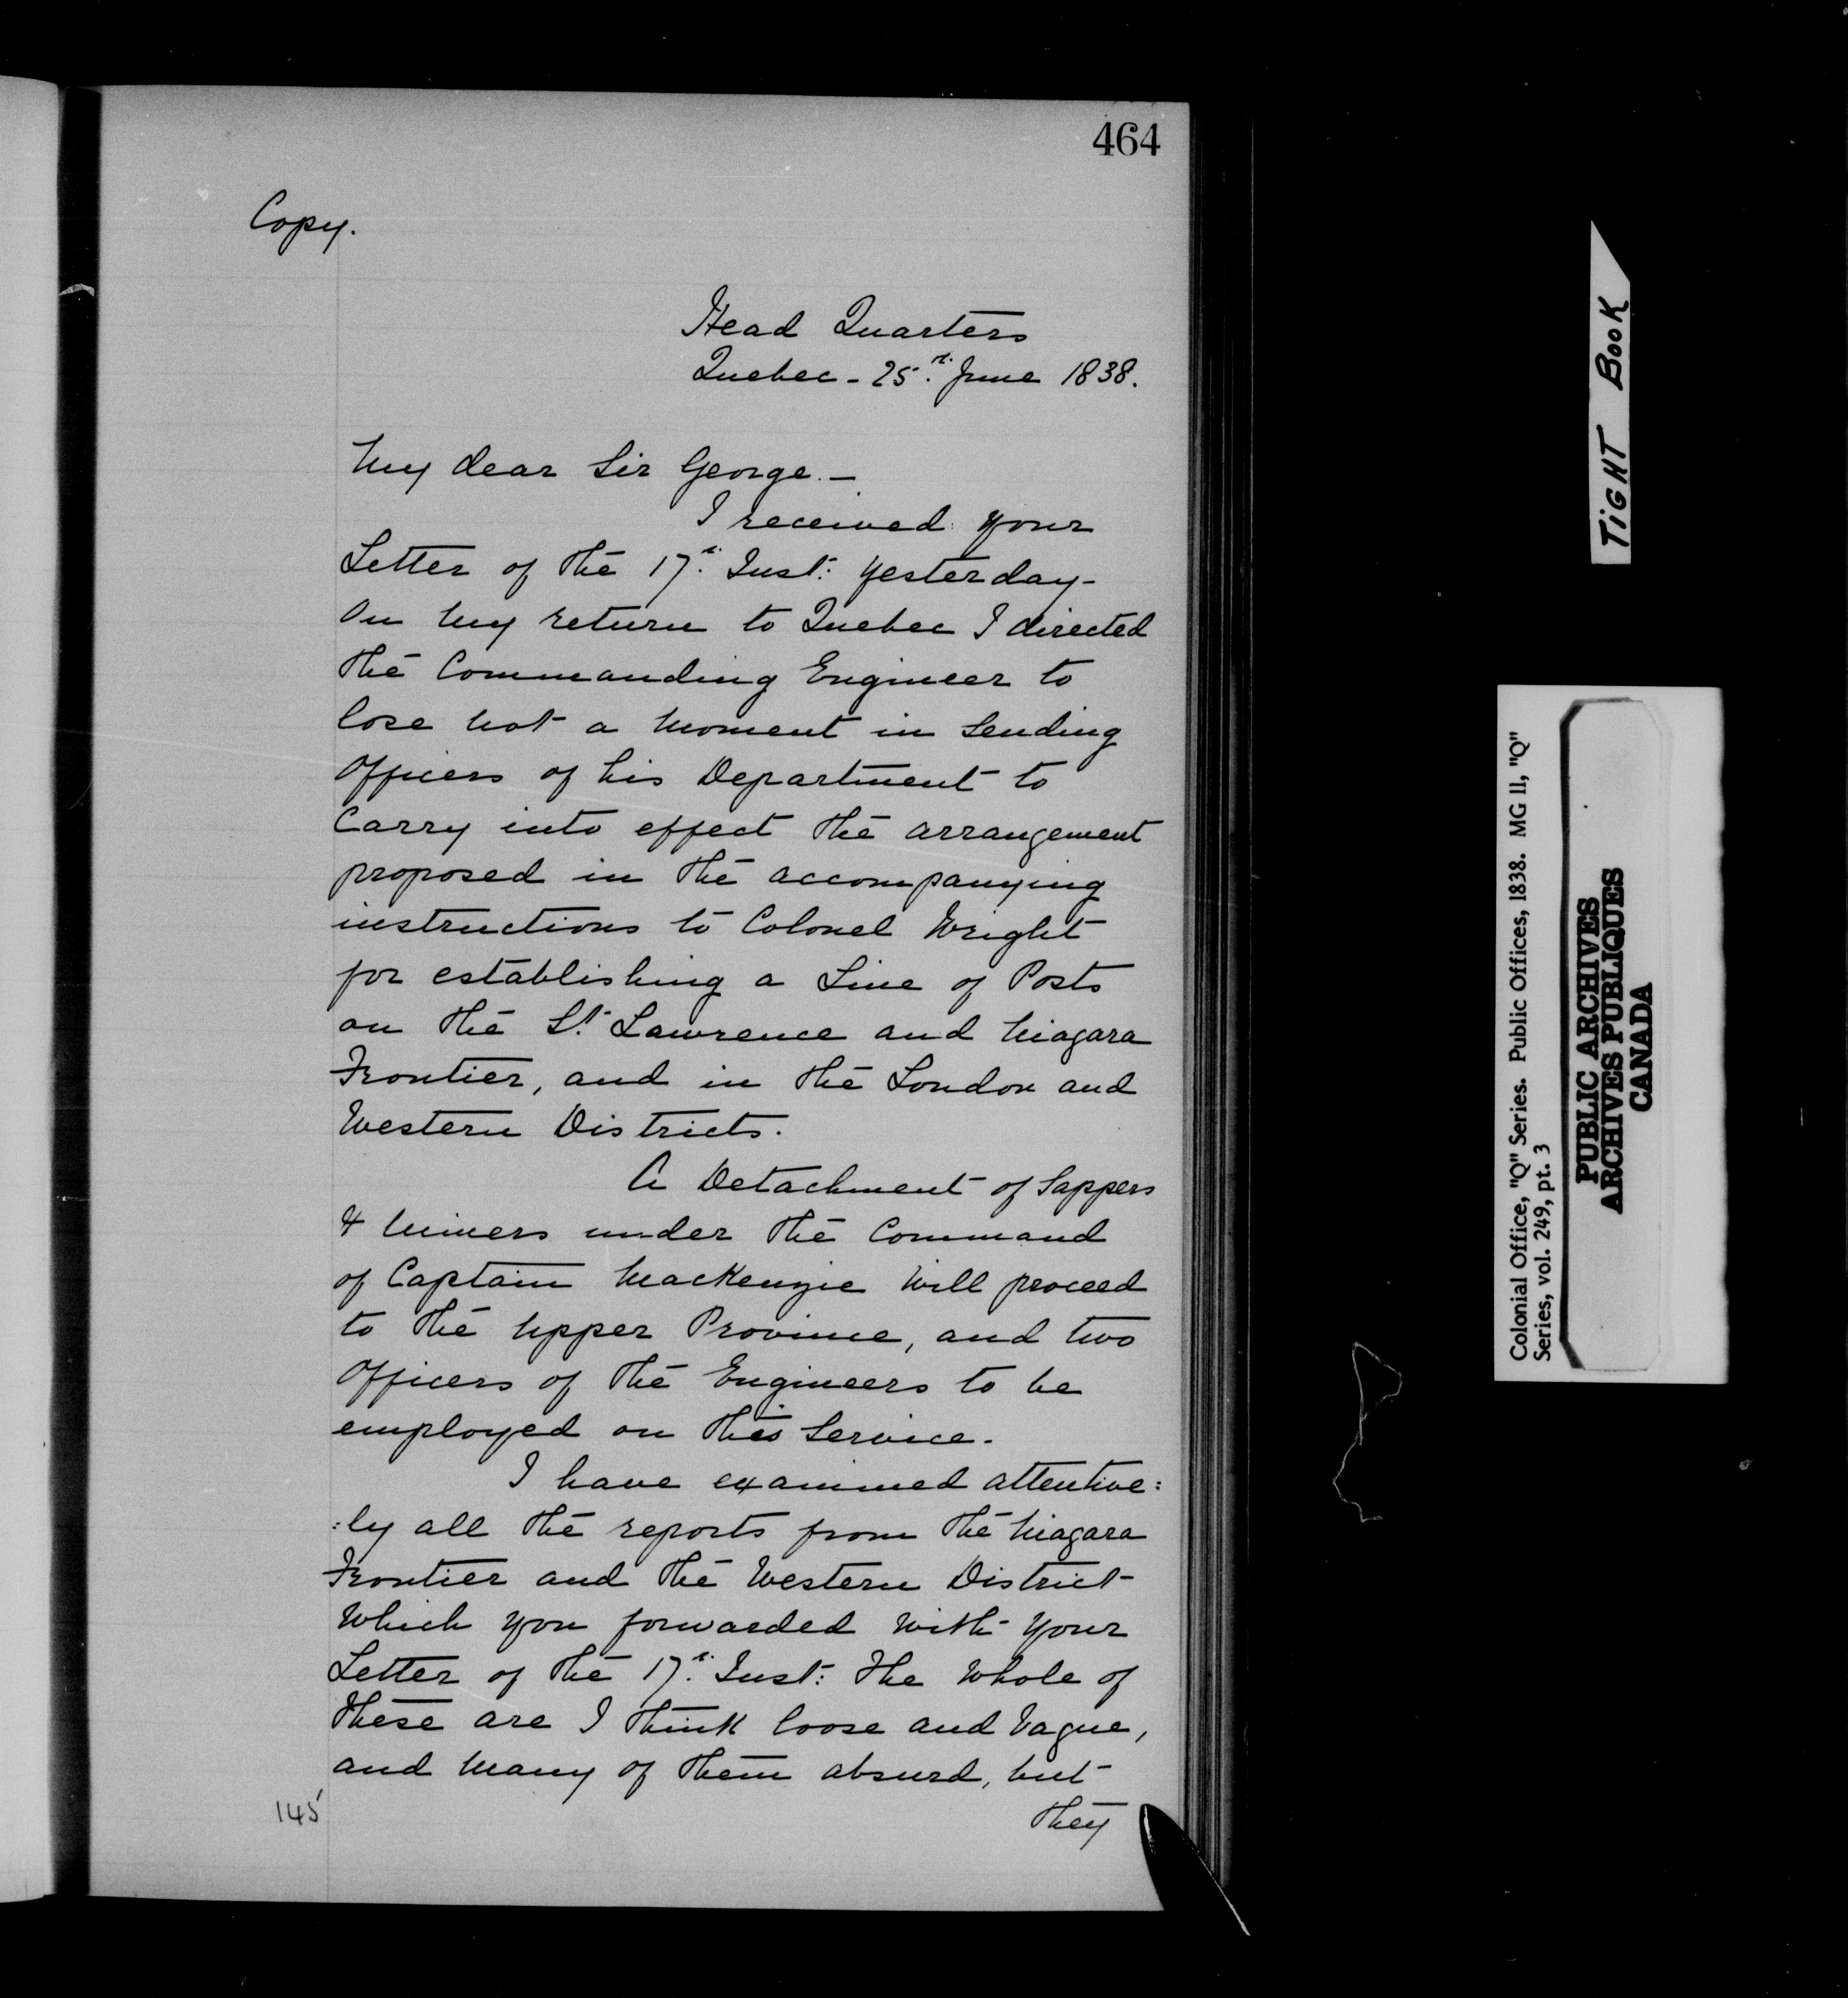 464
Copy.
Head Quarters
Quebec - 25th. June 1838.
My dear Sir George. -
I received your
Letter of the 17th. Inst: yesterday -
On my return to Quebec I directed
the Commanding Engineer to
lose not a moment in sending
Officers of his Department to
Carry into effect the arrangement
proposed in the accompanying
instructions to Colonel Wright
for establishing a Line of Posts
on the St. Lawrence and Niagara
Frontier, and in the London and
Western Districts.
A Detachment of Sappers
& Miners under the Command
of Captain MacKenzie will proceed
to the Upper Province, and two
Officers of the Engineers to be
employed on this Service.
I have examined attentive:
:ly all the reports from the Niagara
Frontier and the Western District
which you forwarded with your
Letter of the 17th. Inst: The whole of
these are I think loose and vague,
and many of them absurd, but
they
145
TiGHT BooK
Colonial Office, "Q" Series. Public Offices, 1838. MG 11, "Q"
Series, vol. 249, pt. 3
PUBLIC ARCHIVES
ARCHIVES PUBLIQUES
CANADA